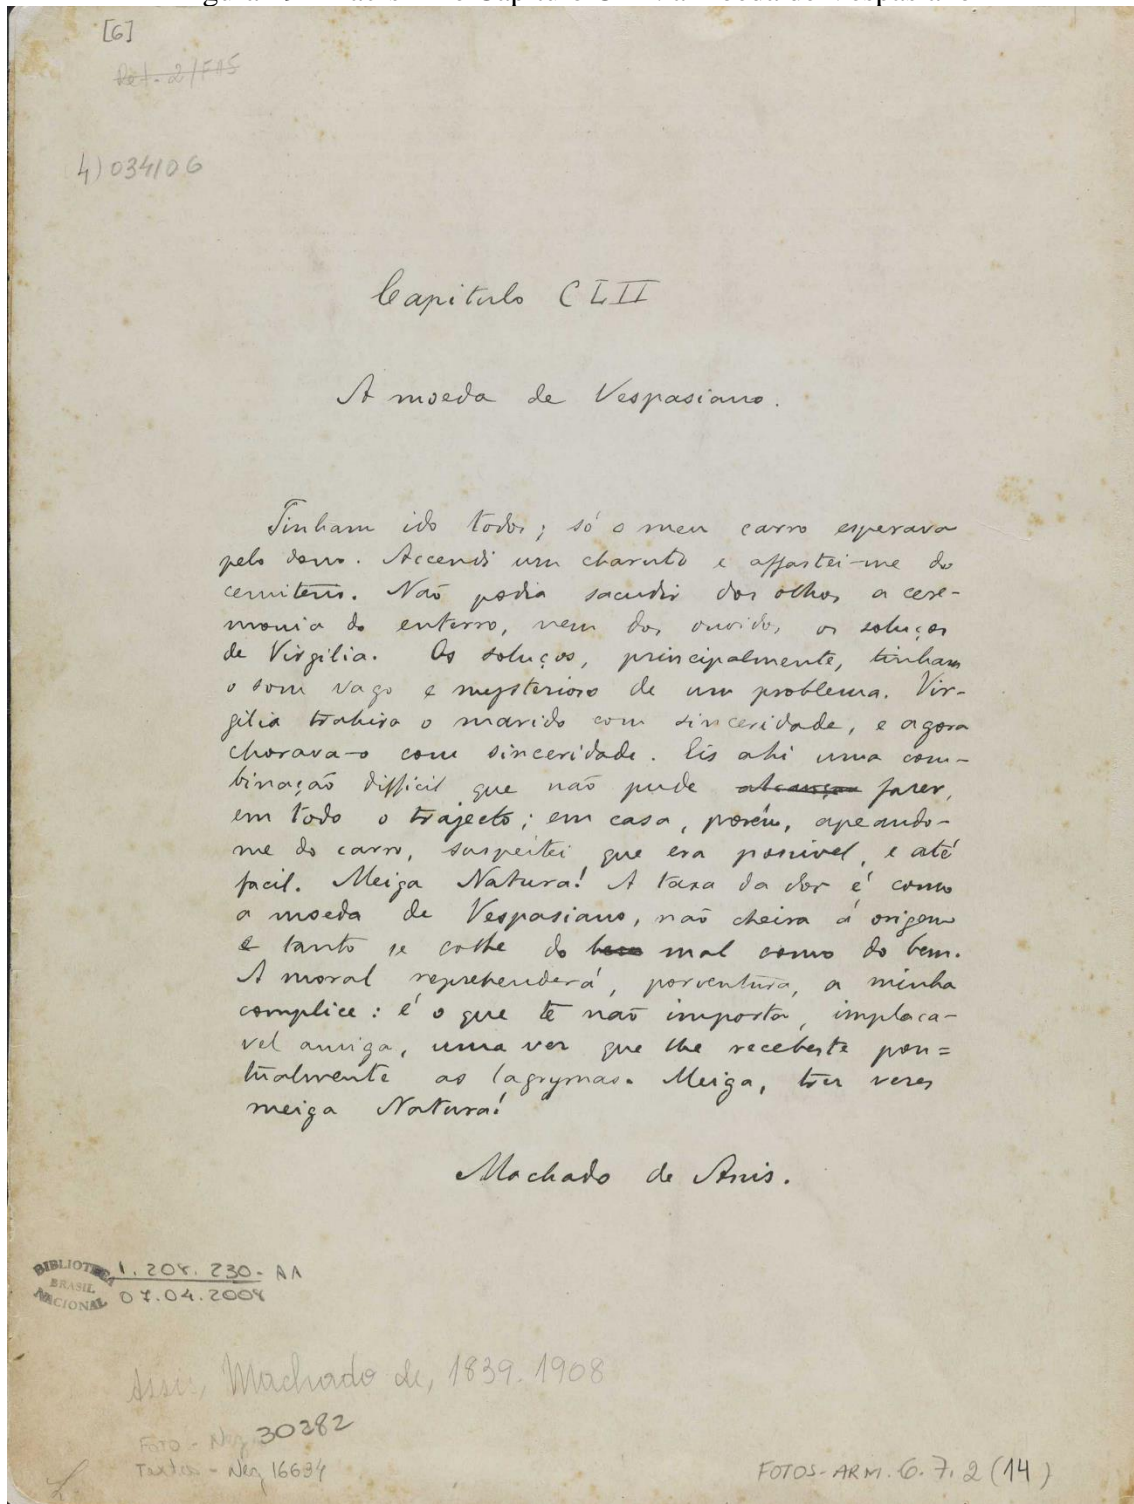 [6]
4) 034106
Capitulo CLII
A moeda de Vespasiano.
Tinham ido todos; só o meu carro esperava
pelo dono. Accendi um charuto e affastei-me do
cemiterio. Não podia sacudir dos olhos a cere-
monia do enterro, nem dos ouvidos os soluços
de Virgilia. Os soluços, principalmente, tinham
o som vago e mysterioso de um problema. Vir-
gilia trahira o marido com sinceridade, e agora
chorava-o com sinceridade. Eis ahi uma com-
binação difficil que não pude alcançar fazer,
em todo o trajecto; em casa, porém, apeando-
me do carro, suspeitei que era possivel, e até
facil. Meiga Natura! A taxa da dor é como
a moeda de Vespasiano, não cheira á origem
e tanto se colhe do bem mal como do bem.
A moral reprehenderá, porventura, a minha
complice: é o que te não importa, implaca-
vel amiga, uma vez que lhe recebeste pon=
tualmente as lagrymas. Meiga, trez vezes
meiga Natura!
Machado de Assis.
BIBLIOTECA
BRASIL
NACIONAL
1.208.230-AA
07.04.2008
Assis, Machado de, 1839-1908
Foto - Neg 30282
Neg 16634
FOTOS-ARM. 6.7.2 (14)